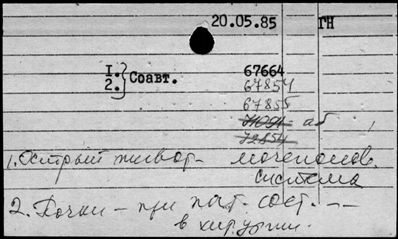 20.05.85 ГН
1. } Соавт. 67664
2. 67854
67855
71091 аб
72854
1. Острый живот - мочеполов.
система
2. Почки - при пат. сост. --
в хирургии.